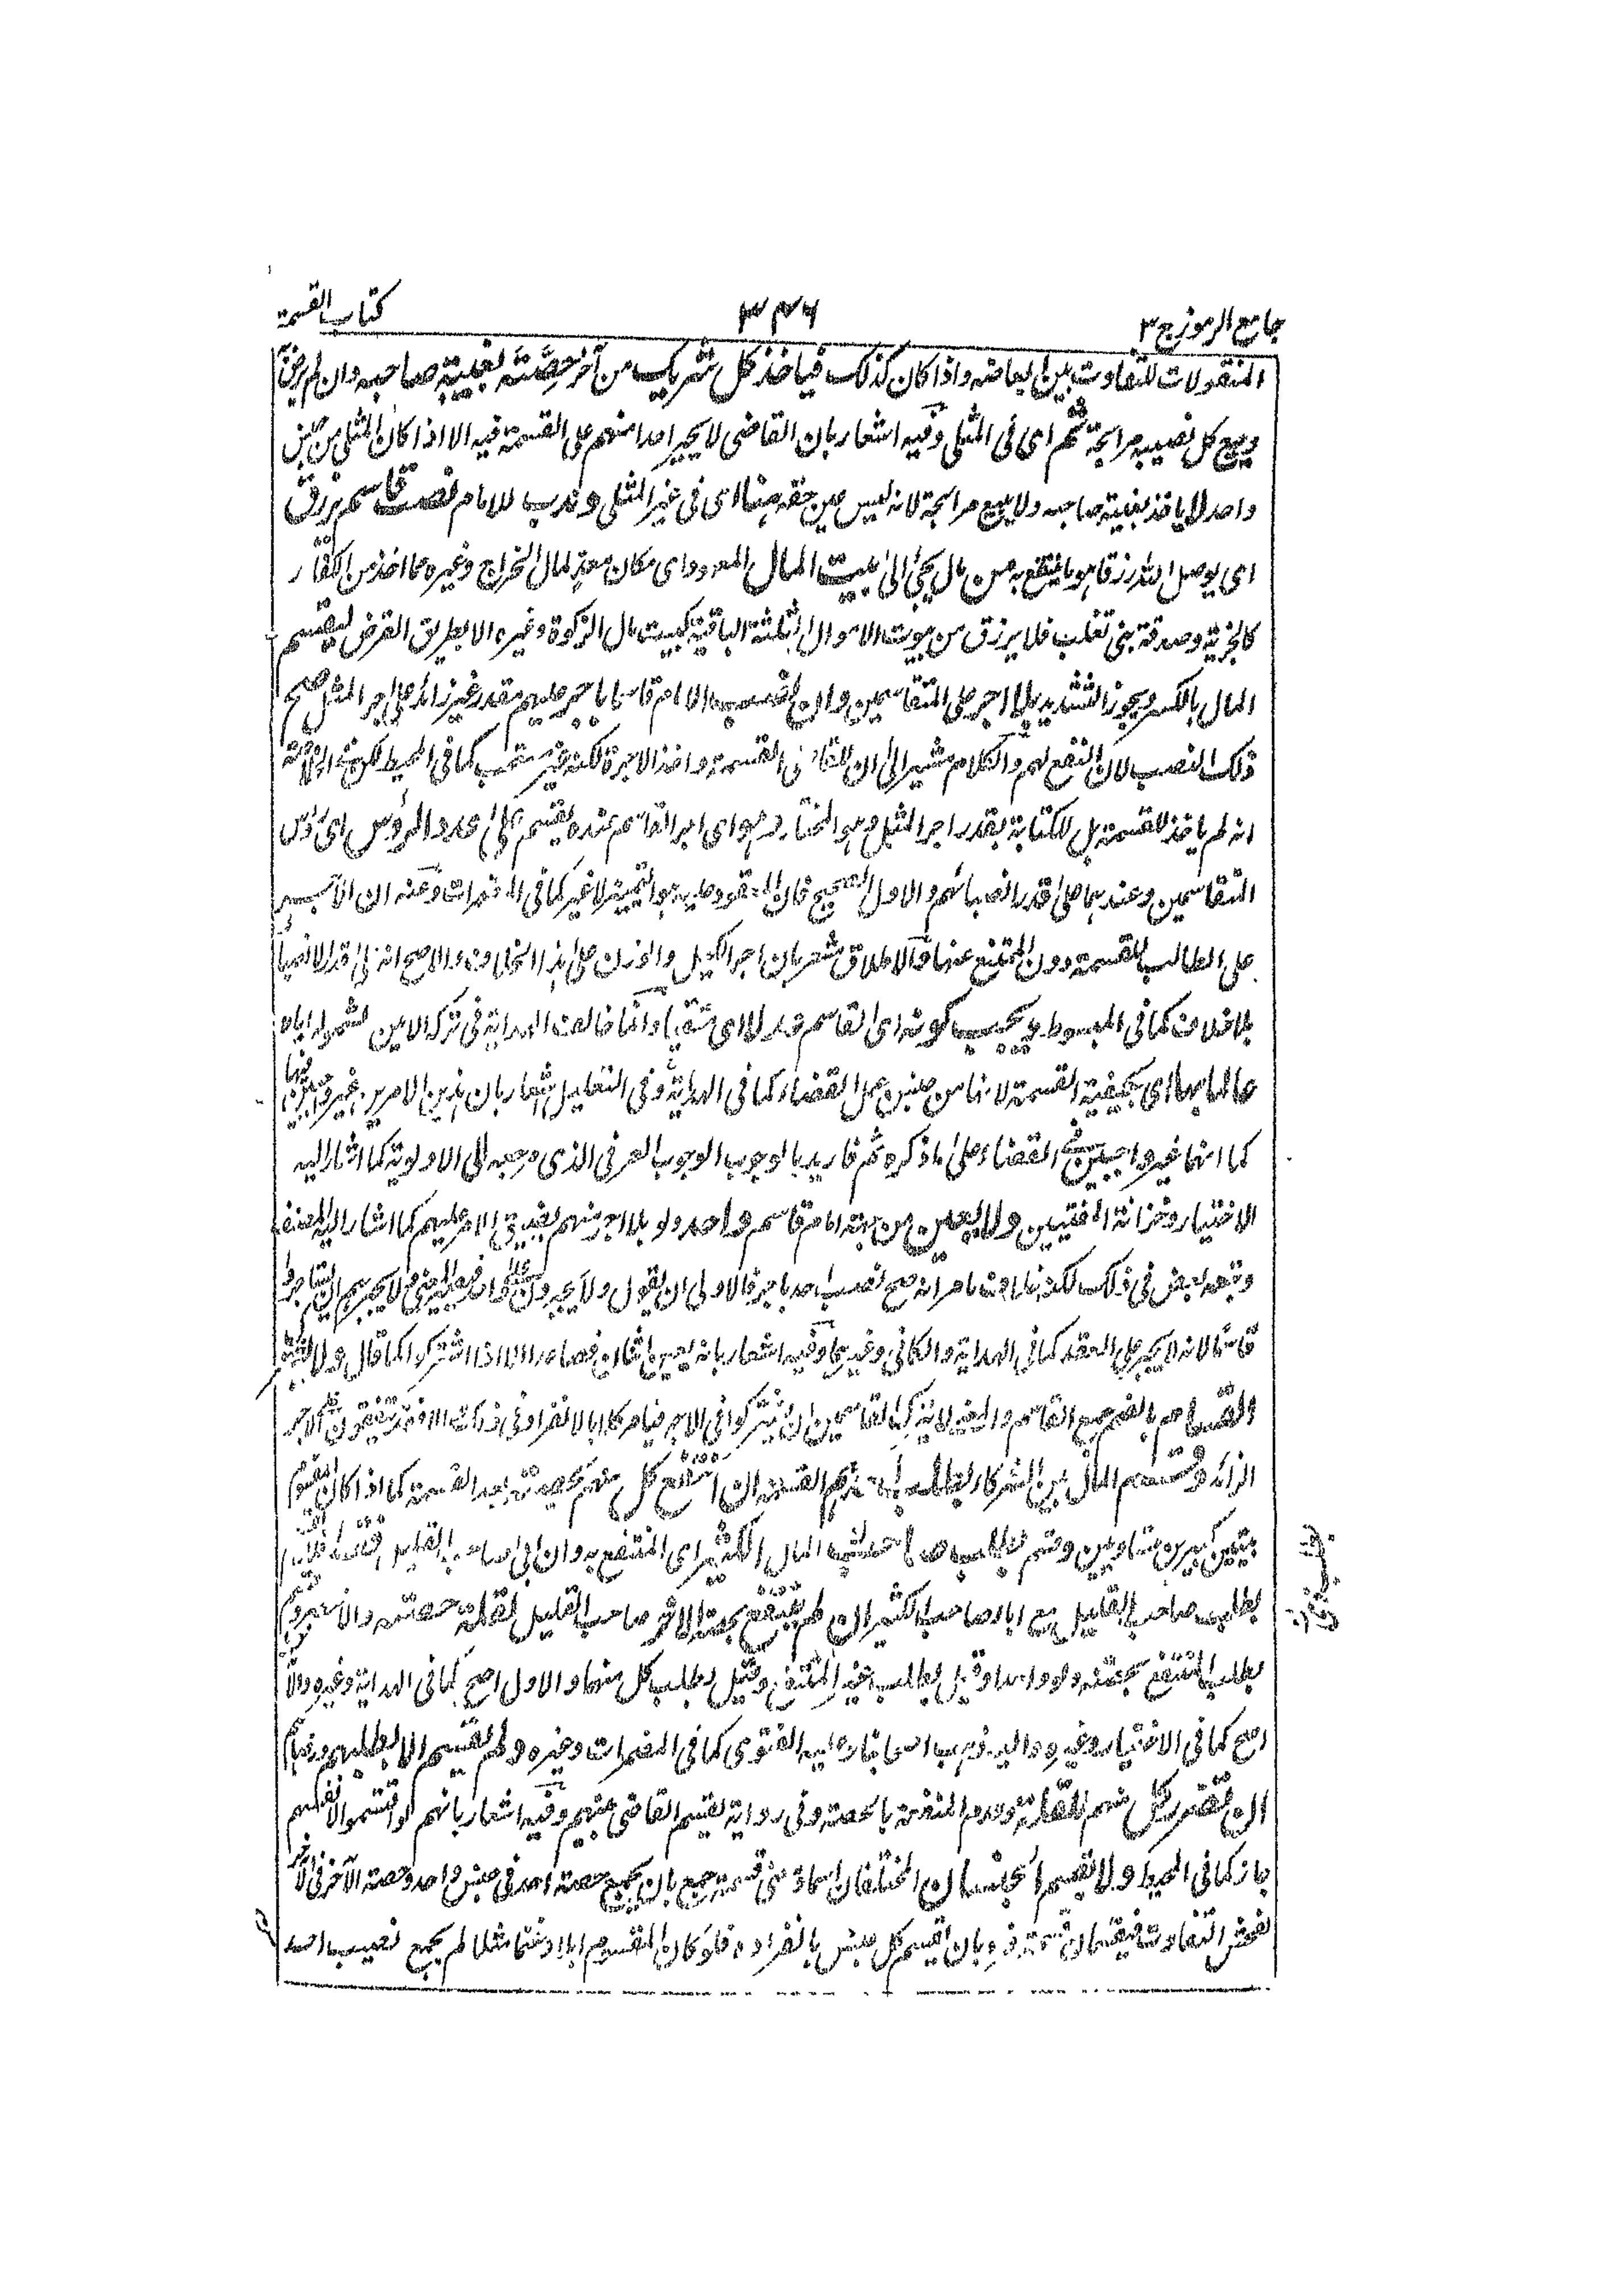 جامع الرموز ج ٣
٣٤٦
كتاب القسمة
المنقولات للتفاوت بين ابعاضه واذا كان كذلك فياخذ كل شريك من آخر حصته بغيبة صاحبه وان لم يرض به
ويبيع كل نصيبه مرابحة ثم اى فى المثلى وفيه اشعار بان القاضى لا يجبر احدا منهم على القسمة فيه الا اذا كان المثلى من جنس
واحد لا ياخذ بغيبة صاحبه ولا يبيع مرابحة لانه ليس عين حقه هنا اى فى غير المثلى وندب للامام نصب قاسم يرزق
اى يوصل اليه رزقا هو ما ينتفع به من مال يجئ الى بيت المال المعدود اى مكان معد لمال الخراج وغيره مما اخذ من الكفار
كالجزية وصدقة بنى تغلب فلا يرزق من بيوت الاموال الثلثة الباقية كبيت مال الزكوة وغيره الا بطريق القرض ليقسم
المال بالكسر ويجوز التشديد بلا اجر على المتقاسمين وان نصب الامام قاسما باجر عليهم مقدر غير زائد على اجر المثل صح
ذلك النصب لان النفع لهم والكلام مشير الى ان للقاضى القسمة واخذ الاجرة لكنه غير مستحب كما فى المحيط لكن فى
انه لم ياخذ للقسمة بل للكتابة بقدر اجر المثل وهو المختار وهو اى اجر القاسم عنده يقسم على عدد الرؤس اى رؤس
المتقاسمين وعندهما على قدر انصبائهم والاول الصحيح فان المعقود عليه هو التمييز لا غير كما فى المضمرات وعنه ان الاجر
على الطالب للقسمة دون الممتنع عنها والاطلاق مشعر بان اجر الكيل والوزن على هذا الخلاف والاصح انه على قدر الانصباء
بلا خلاف كما فى المبسوط ويجب كونه اى القاسم عدلا اى متقيا وانما خالف الهداية فى تركه الامين لشموله اياه
عالما بها اى بكيفية القسمة لانها من جنس عمل القضاء كما فى الهداية وفى التعليل اشعار بان هذين الامرين غير واجبين فيها
كما انهما غير واجبين فى القضاء على ما ذكره ثم فاريد بالوجوب الوجوب العرفى الذى مرجعه الى الاولوية كما اشار اليه
الاختيار وخزانة المفتيين ولا يعين من جهة الامام قاسم واحد ولو بلا اجر منهم لضيق الامر عليهم كما اشار اليه المصنف
وتبعه بعض فى ذلك لكنه صح نصب احد باجر فالاولى ان يقول ولا يجبرون لا يجبرهم ان يستاجروا
قاسما لانه لا يجبر على العقد كما فى الهداية والكافى وغيرهما وفيه اشعار بانه يعين اثنان فصاعدا الا اذا اشتركوا كما قال ولا يشترك
القسام بالضم جمع القاسم والمعنى لا يترك القاسمين ان يشتركوا فى الاجر فيامر كلا بالانفراد فى ذلك يتفقون على الاجر
الزائد وقسم المال بين الشركاء بطلب احدهم القسمة ان انتفع كل منهم بحصته بعد القسمة كما اذا كان المقسوم
بيتين كبيرين متساويين وقسم بطلب صاحب المال الكثير اى المنتفع به وان ابى صاحب القليل
بطلب صاحب القليل مع اباء صاحب الكثير ان لم ينتفع بحصته الآخر صاحب القليل لقلة حصته
بطلب المنتفع بحصته ولو واحدا وقيل بطلب غير المنتفع وقيل بطلب كل منهما والاول اصح كما فى الهداية وغيره
اصح كما فى الاختيار وغيره واليه ذهب اصحابنا وعليه الفتوى كما فى المضمرات وغيره ولم يقسم الا بطلبهم ورضاهم
ان تضرر كل منهم للقلة وعدم المنفعة بالحصة وفى رواية يقسم القاضى بينهم وفيه اشعار بانهم لو اقتسموا لانفسهم
جاز كما فى المحيط ولا يقسم الجنسان المختلفان اسما ومعنى قسمة جمع بان يجمع حصة احد فى جنس واحد وحصة الآخر فى الآخر
لفحش التفاوت فيقسمان بان يقسم كل جنس بانفراده فلو كان المقسوم ابلا وغنما مثلا لم يجمع نصيب احد